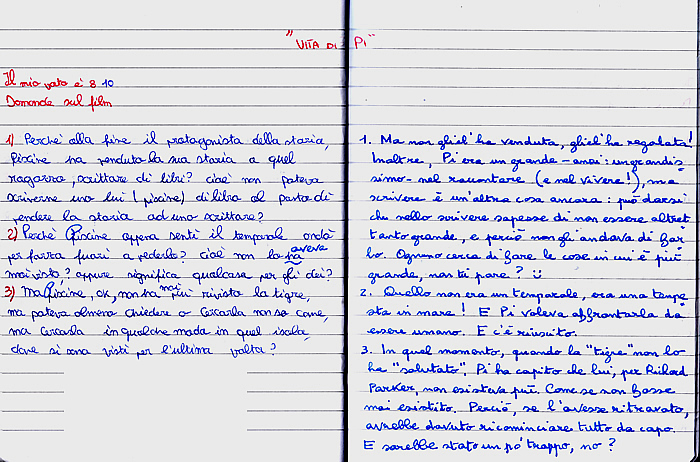 "VITA DI PI"
Il mio voto è 8 10
Domande sul film
1) Perchè alla fine il protagonista della storia,
Piscine ha venduto la sua storia a quel
ragazzo, scrittore di libri? cioè non poteva
scriverne uno lui (piscine) di libro al posto di
vendere la storia ad uno scrittore?
2) Perchè Piscine appena sentì il temporale andò
per furia fuori a vederlo? cioè non lo aveva
mai visto? oppure significa qualcosa per gli dei?
3) Ma Piscine, ok, non ha mai più rivisto la tigre,
ma poteva almeno chiedere o cercarla non so come,
ma cercarla in qualche modo in quel isola,
dove si sono visti per l'ultima volta?
1. Ma non gliel'ha venduta, gliel'ha regalata!
Inoltre, Pi era un grande - anzi: un grandis-
simo - nel raccontare (e nel vivere!), ma
scrivere è un'altra cosa ancora: può darsi
che nello scrivere sapesse di non essere altret
tanto grande, e perciò non gli andava di far
lo. Ognuno cerca di fare le cose in cui è più
grande, non ti pare? :)
2. Quello non era un temporale, era una tempe
sta in mare! E Pi voleva affrontarla da
essere umano. E c'è riuscito.
3. In quel momento, quando la "tigre" non lo
ha "salutato", Pi ha capito che lui, per Richard
Parker, non esisteva più. Come se non fosse
mai esistito. Perciò, se l'avesse ritrovato,
avrebbe dovuto ricominciare tutto da capo.
E sarebbe stato un pò troppo, no?